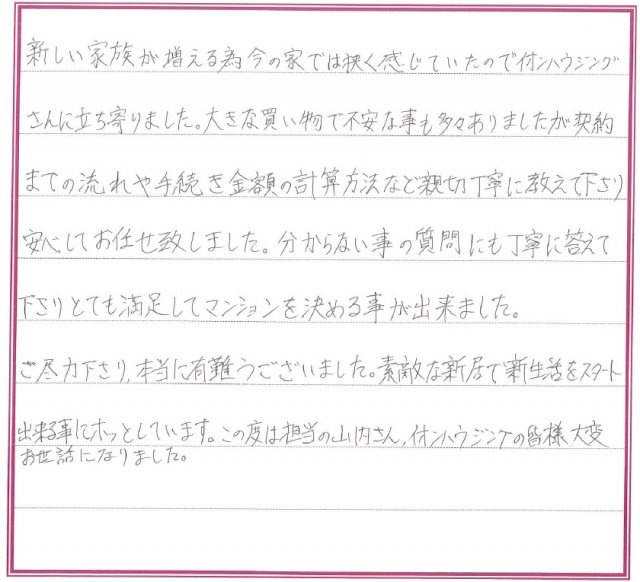 新しい家族が増える為今の家では狭く感じていたのでイオンハウジング
さんに立ち寄りました。大きな買い物で不安な事も多々ありましたが契約
までの流れや手続き金額の計算方法など親切丁寧に教えて下さり
安心してお任せ致しました。分からない事の質問にも丁寧に答えて
下さりとても満足してマンションを決める事が出来ました。
ご尽力下さり、本当に有難うございました。素敵な新居で新生活をスタート
出来る事にホッとしています。この度は担当の山内さん、イオンハウジングの皆様大変
お世話になりました。